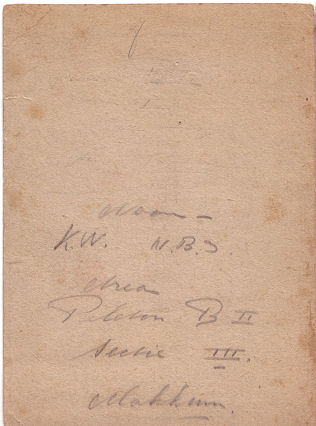 K.W. N.B.S.
Area
Peloton B II
Sectie III.
Makkum.